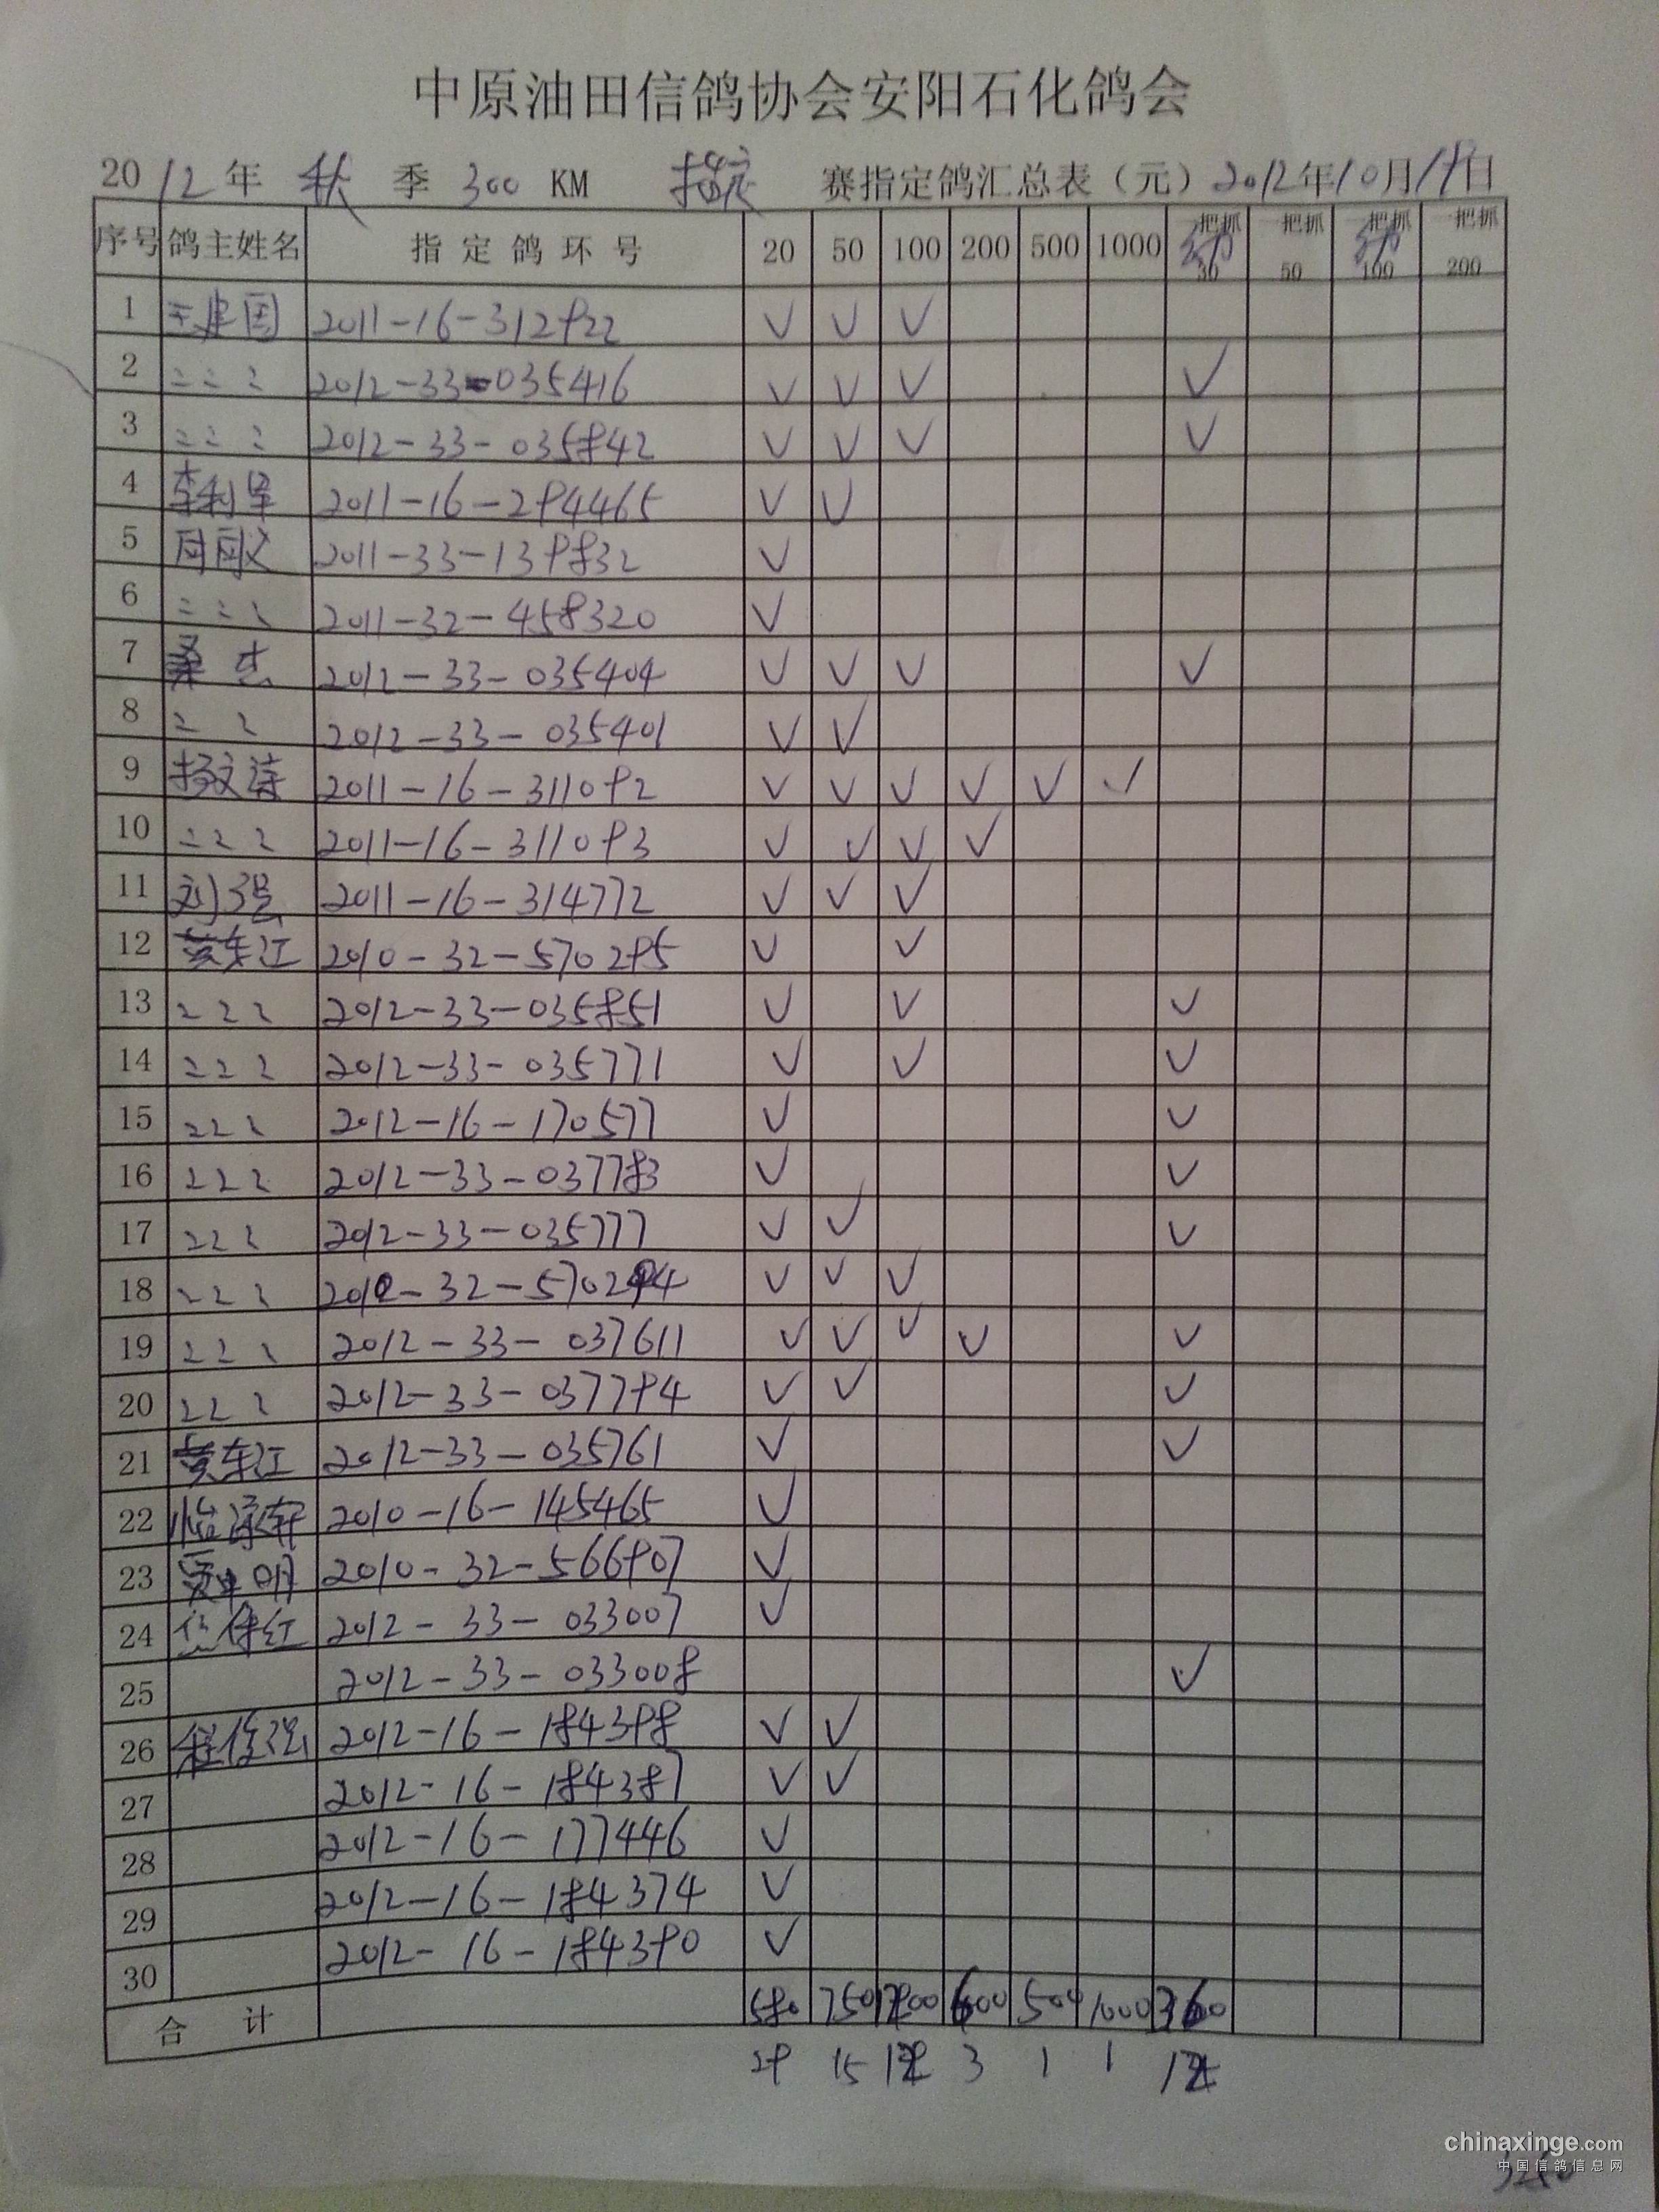 中原油田信鸽协会安阳石化鸽会
2012年 秋 季 300 KM 指定 赛指定鸽汇总表（元）2012年10月19日
序号 鸽主姓名 指定鸽环号 20 50 100 200 500 1000 一把抓 30 一把抓 50 一把抓 100 一把抓 200
1 王建国 2011-16-312922 √ √ √
2 〃 〃 〃 2012-33-035416 √ √ √ √
3 〃 〃 〃 2012-33-035842 √ √ √ √
4 李利军 2011-16-294465 √ √
5 2011-33-139832 √
6 〃 〃 〃 2011-32-458320 √
7 2012-33-035404 √ √ √ √
8 〃 〃 2012-33-035401 √ √
9 2011-16-311092 √ √ √ √ √ √
10 〃 〃 〃 2011-16-311093 √ √ √ √
11 刘强 2011-16-314772 √ √ √
12 黄东江 2010-32-570295 √ √
13 〃 〃 〃 2012-33-035851 √ √ √
14 〃 〃 〃 2012-33-035771 √ √ √
15 〃 〃 〃 2012-16-170577 √ √
16 〃 〃 〃 2012-33-037783 √ √
17 〃 〃 〃 2012-33-035777 √ √ √
18 〃 〃 〃 2010-32-570294 √ √ √
19 〃 〃 〃 2012-33-037611 √ √ √ √ √
20 〃 〃 〃 2012-33-037794 √ √ √
21 黄东江 2012-33-035761 √ √
22 2010-16-145465 √
23 2010-32-566907 √
24 2012-33-033007 √
25 2012-33-033008 √
26 2012-16-184398 √ √
27 2012-16-184387 √ √
28 2012-16-177446 √
29 2012-16-184374 √
30 2012-16-184390 √
合计 580 750 600 500 1000
29 15 3 1 1
chinaxinge.com
中国信鸽信息网